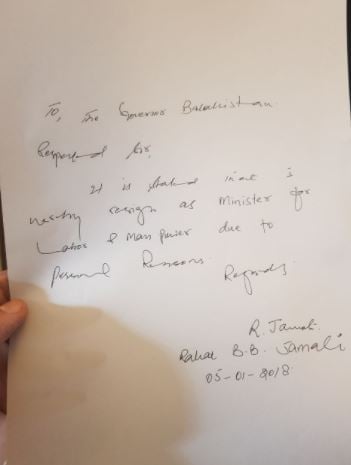 To, The Governor Balochistan.
Respected Sir,
It is stated that I
hereby resign as Minister for
Labor & Man power due to
Personal Reasons.
Regards.
R. Jamali
Rahat B.B. Jamali
05-01-2018